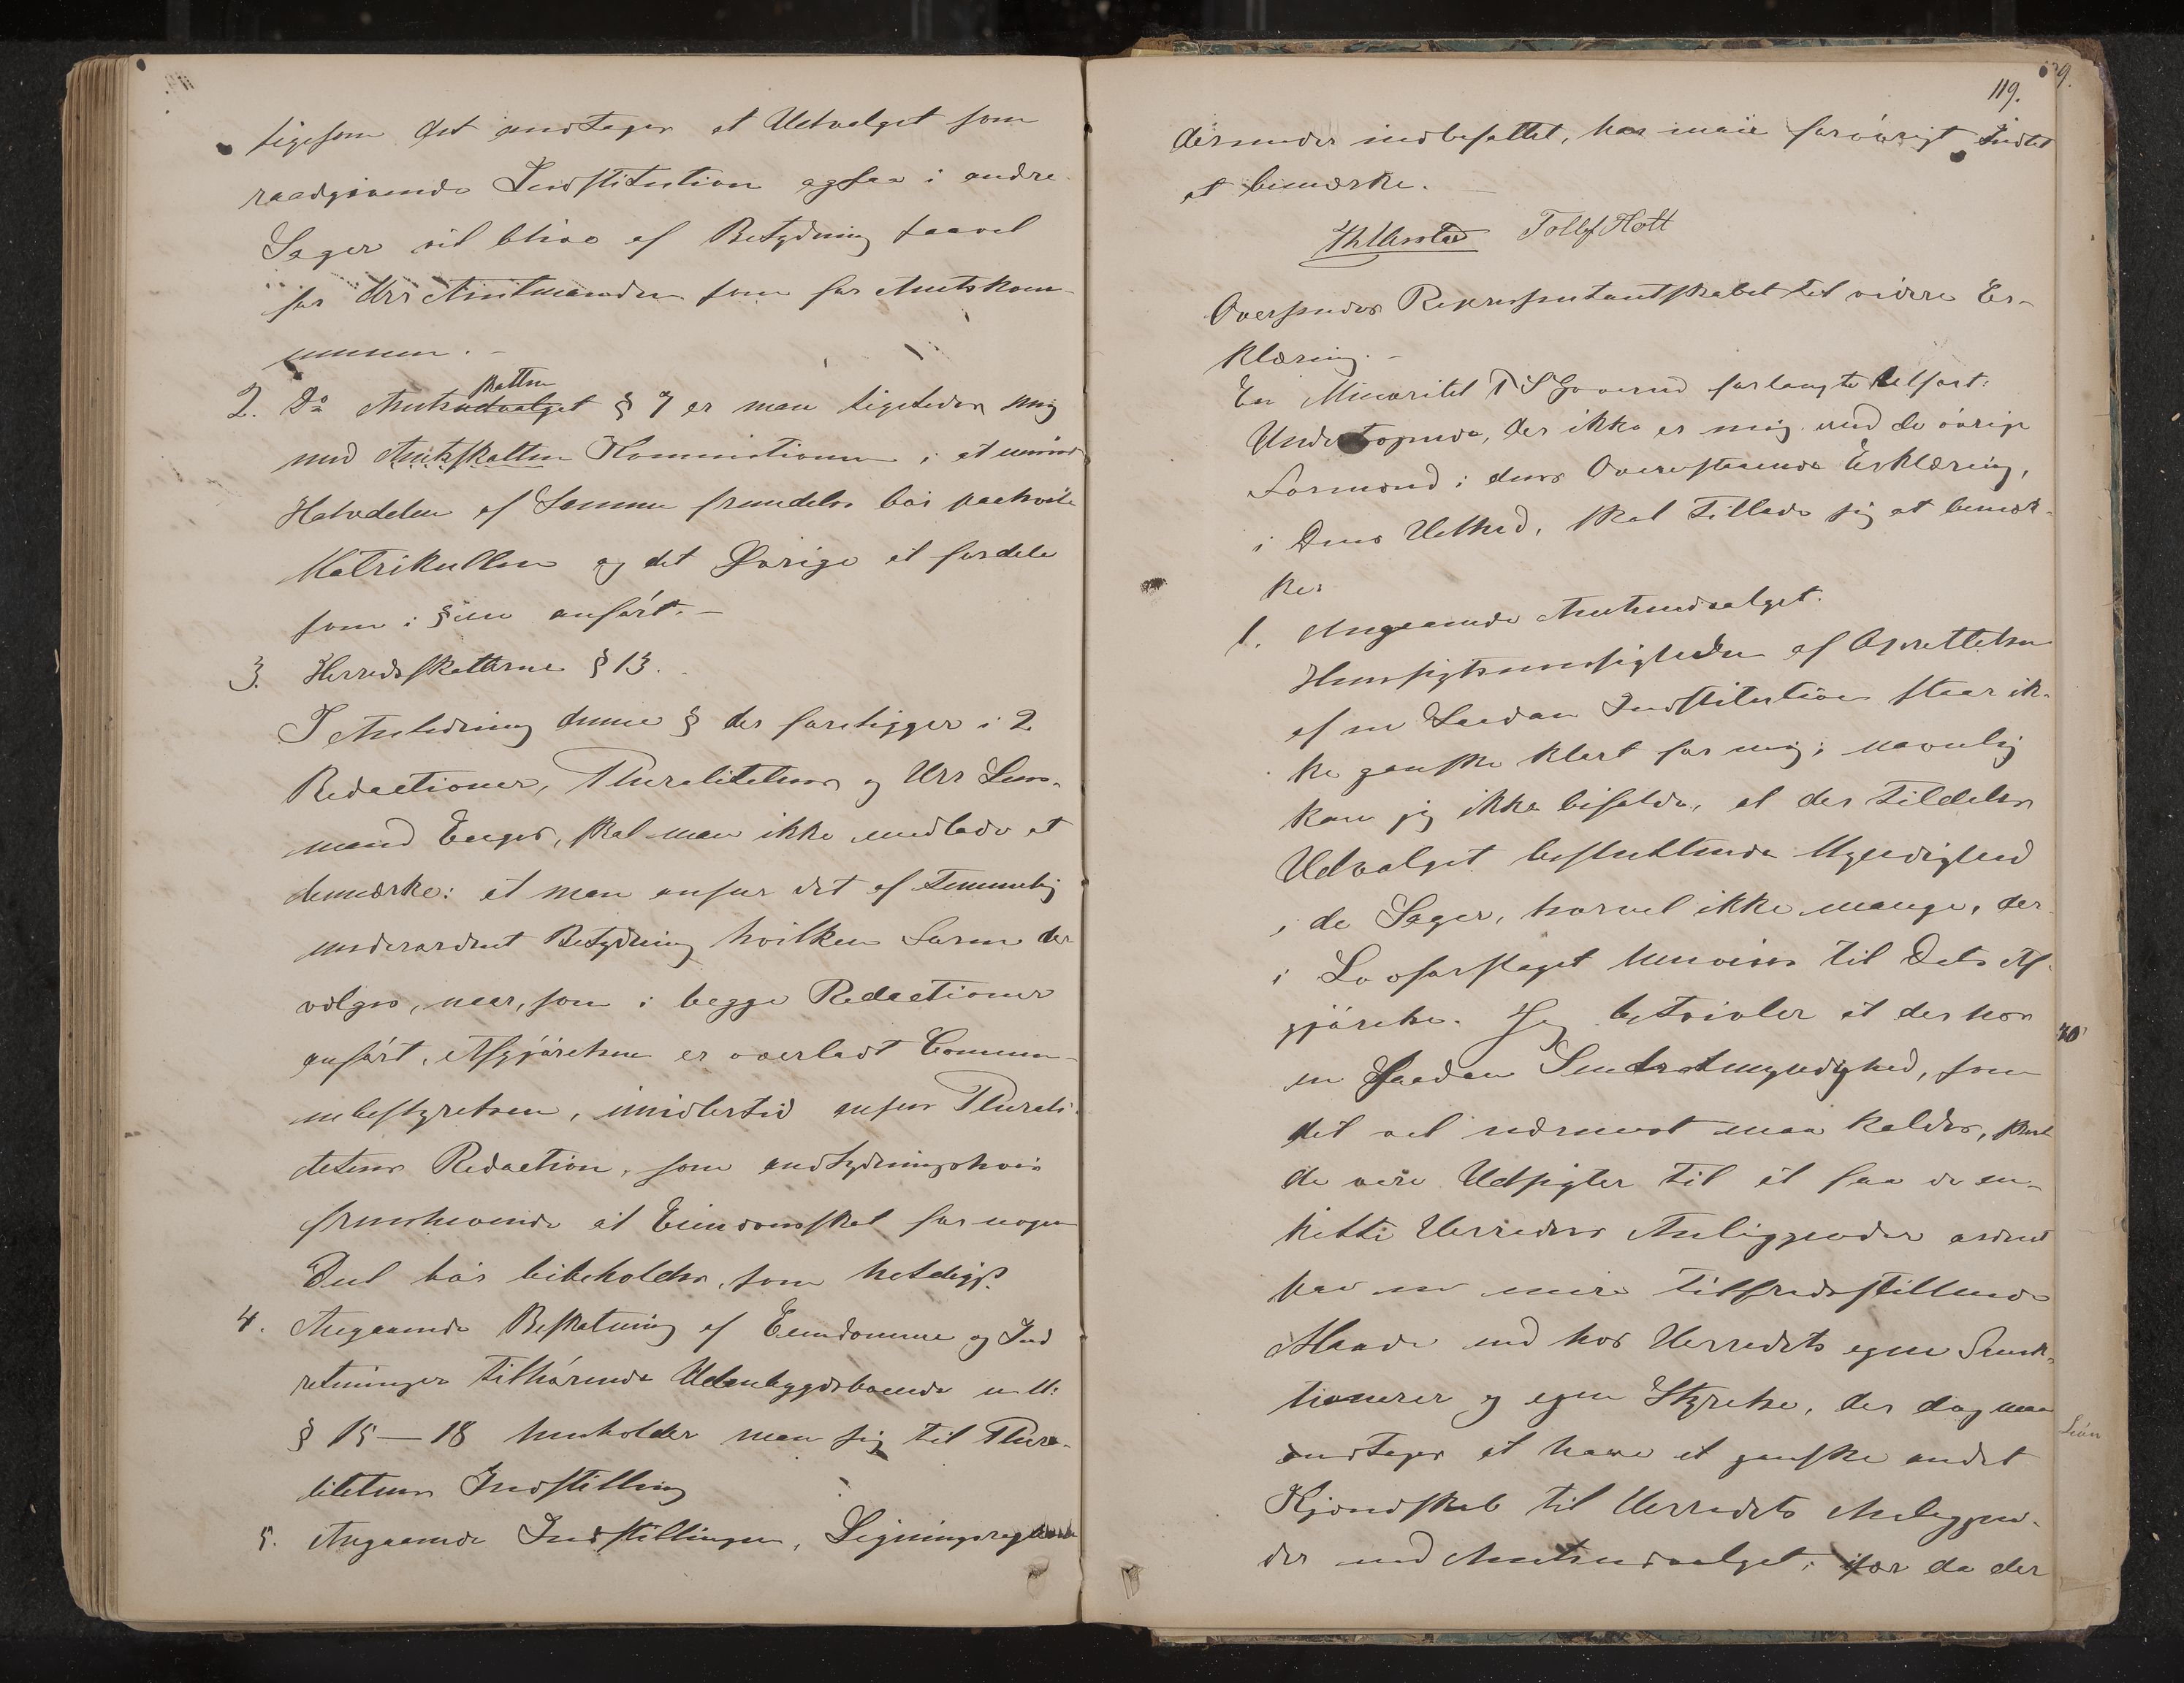 ligesom det antages at Udvalget som
raadgivende Institution ogsaa i andre
Sager vil blive af Betydning saavel
for Hrr Amtmanden som for Amtskom-
munen.-
2. Do Amtsudvalget skatten § 7 er man ligeledes enig
med Amtsskatten Kommissionen i at mindst
Halvdelen af Samme fremdeles bör paahvile
Matrikullen og det Øvrige at fordele
som i §en anfört.-
3. Herredsskatterne § 13.
I Anledning denne § der foreligger i 2
Redactioner, Pluralitetens og Hrr Lens-
mand Enger, skal man ikke undlade at
bemærke: at man anser det af temmelig
underordnet Betydning hvilken Form der
vælges, naar, som i begge Redactioner
anfört, Afgjörelsen er overladt Commu-
nebestyrelsen, imidlertid ansees Plurali-
tetens Redaction, som antydningsvis
fremhævende at Eiendomsskat for nogen
Deel bör bibeholdes, som heldigst.
4. Angaaende Beskatning af Eiendomme og Ind
retninger tilhörende Udenbygdsboende m M:
§ 15 — 18 henholder man sig til Plura-
litetens Indstilling
5. Angaaende Indstillingen,
119.
derunder indbefattet, har man forövrigt Indtet
at bemærke.
Tollef Holt
Oversendes Repræsentantskabet til videre Er-
klæring.-
En Minoritet forlangte tilfört:
Undertegnede, der ikke er enig med de övrige
Formænd i deres Ovenstaaende Erklæring,
i Dens Helhed, skal tillade sig at bemær-
ke:
1. Angaaende Amtsudvalget.
Hensigtsmæssigheden af Oprettelsen
af en Saadan Institution staar ik-
ke ganske klart for mig; navnlig
kan jeg ikke bifalde, at der tildeles
Udvalget besluttende Myndighed
i de Sager, hvorvel ikke mange, der
i Lovforslaget henvises til Dets Af-
gjörelse. Jeg betvivler at der hos
en Saadan Sentralmyndighed, som
det vel nærmest maa kaldes, skul
de være Udsigter til at faa de en-
kelte Herreders Anliggender ordnet
paa en mere tilfredsstillende
Maade end hos Herredets egne Funk-
tionærer og egen Styrelse, der dog maa
antages at have et ganske andet
Kjendskab til Herredets Anliggen-
der end Amtsudvalget; især da der